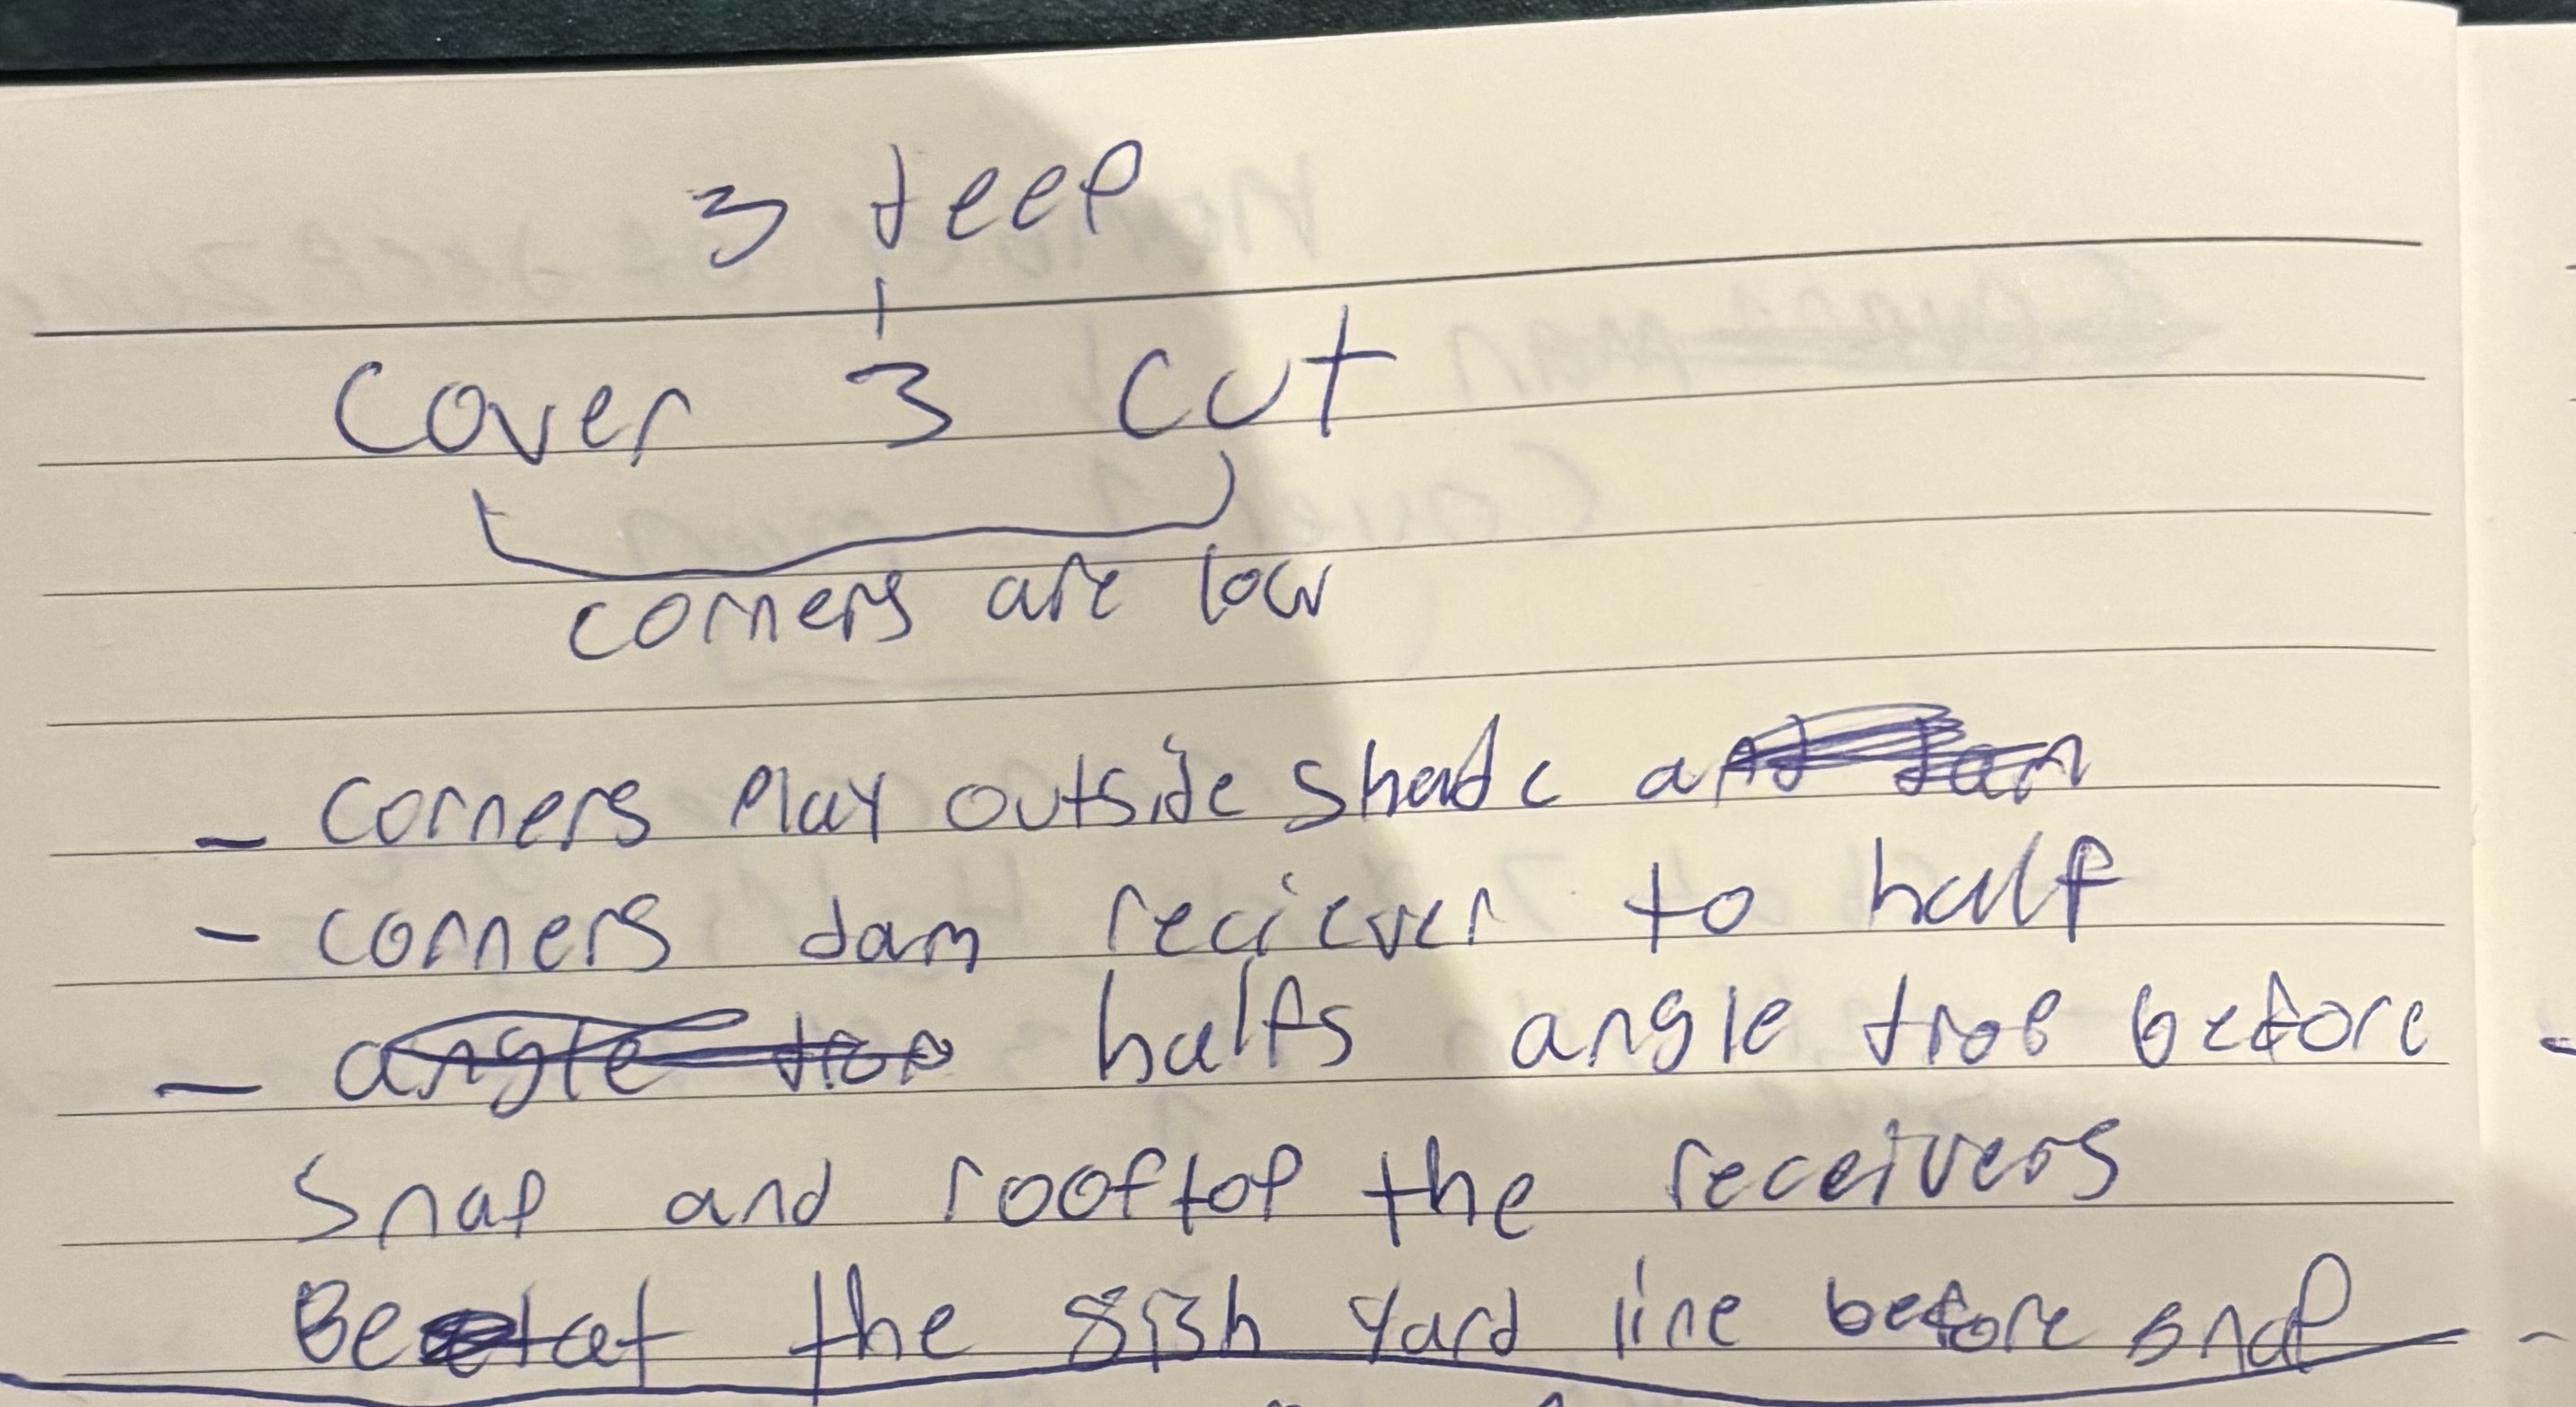 3 deep
Cover 3 cut
corners are low
- corners play outside shade
- corners jam reciever to half
- halfs angle drop before
Snap and rooftop the receivers
Be at the yard line before snap